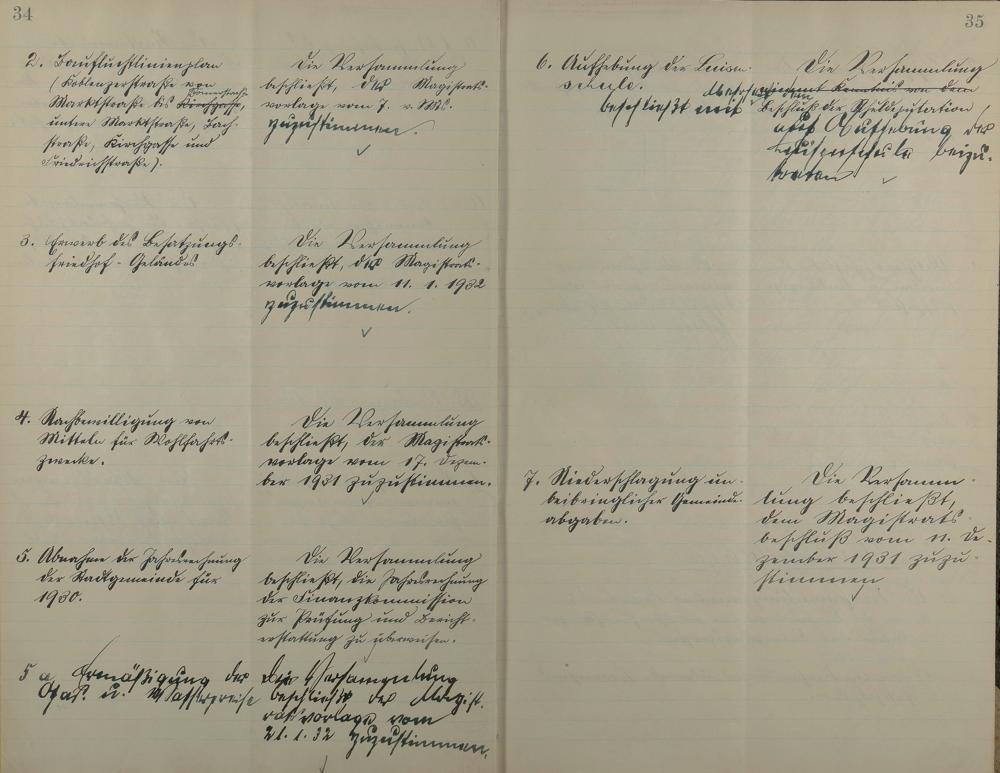 34
2. Baufluchtlinienplan
(Koblenzerstraße von
Marktstraße bis Kirchgasse,
untere Marktstraße, Bach-
straße, Kirchgasse und
Friedrichstraße).
Die Versammlung
beschließt, der Magistrats-
vorlage vom 7. v. Mts.
zuzustimmen.
3. Erwerb des Besatzungs-
friedhof-Geländes
Die Versammlung
beschließt, der Magistrats-
vorlage vom 11. 1. 1932
zuzustimmen.
4. Nachbewilligung von
Mitteln für Wohlfahrts-
zwecke.
Die Versammlung
beschließt, der Magistrats-
vorlage vom 17. Dezem-
ber 1931 zuzustimmen.
5. Abnahme der Jahresrechnung
der Stadtgemeinde für
1930.
Die Versammlung
beschließt, die Jahresrechnung
der Finanzkommission
zur Prüfung und Bericht-
erstattung zu überweisen.
5 a Ermäßigung der
Gas- u. Wasserpreise
Die Versammlung
beschließt der Magist-
ratsvorlage vom
21. 1. 32 zuzustimmen.
35
6. Aufhebung der Luisen-
schule.
Die Versammlung
beschließt mit
nimmt Kenntnis von dem
Beschluß der Schuldeputation
auf Aufhebung der
Luisenschule beizu-
treten
7. Niederschlagung un-
beibringlicher Gemeinde-
abgaben.
Die Versamm-
lung beschließt,
dem Magistrats-
beschluß vom 11. De-
zember 1931 zuzu-
stimmen